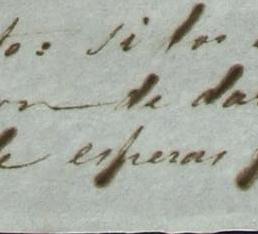 to: si los
on de da
de esperas